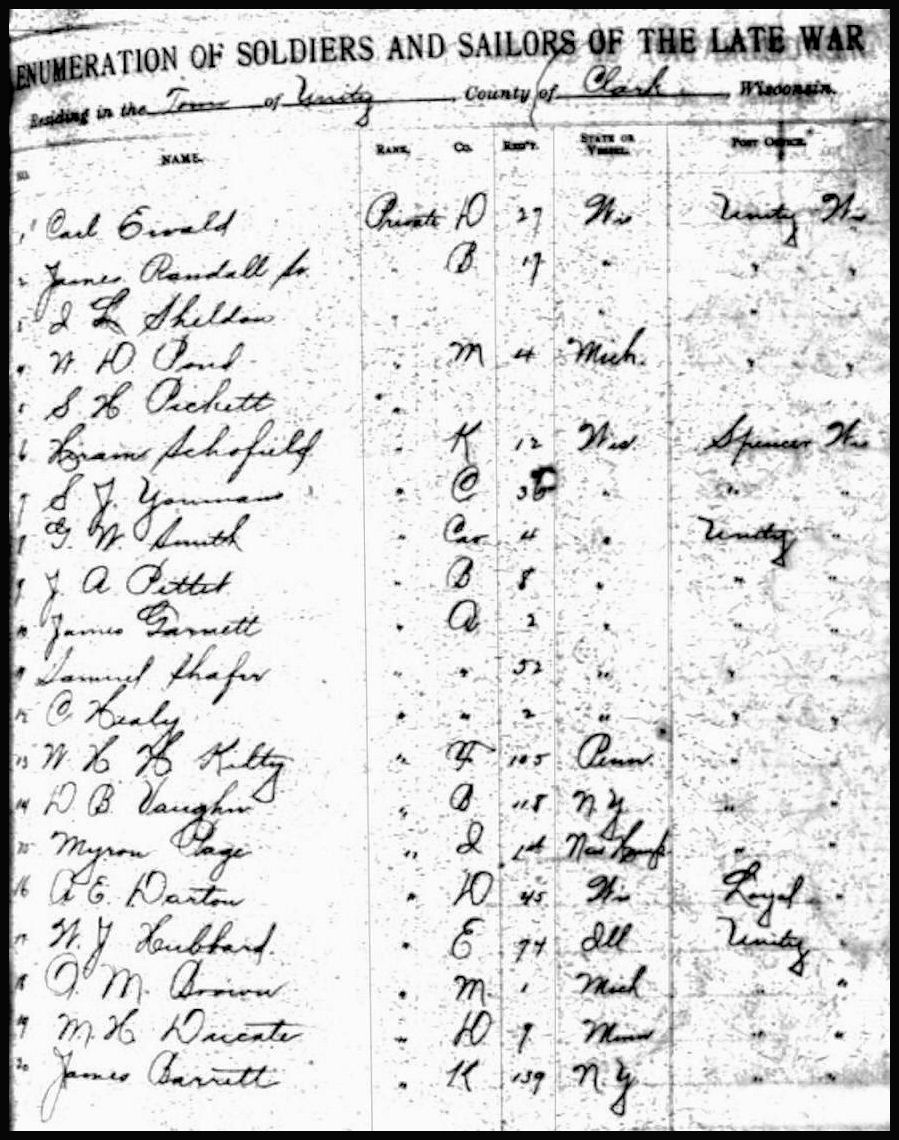 ENUMERATION OF SOLDIERS AND SAILORS OF THE LATE WAR
Residing in the Town of Unity, County of Clark, Wisconsin.
NO. NAME. RANK. Co. REG'T. STATE OR VESSEL. POST OFFICE.
1 Carl Ewald Private D 27 Wis Unity Wis
2 James Randall Sr. " B 17 " " "
3 I L Sheldon " " "
4 W D Pond " M 4 Mich. " "
5 S H Pickett "
6 Hiram Schofield " K 12 Wis. Spencer Wis
7 S J Youmans " C " " "
8 G W. Smith " Cav 4 " Unity "
9 J A Pettet " B 8 " " "
10 James Garnett " A 2 " " "
11 Samuel Shafer " " 52 " " "
12 C Healy " " 2 " " "
13 W H H Kilty " F 105 Penn. " "
14 D B Vaughn " B 118 N Y " "
15 Myron Page " I 1st New Hamp " "
16 A E Darton " D 45 Wis Loyal "
17 W. J Hubbard " E 74 Ill Unity "
18 M. Brown " M 1 Mich " "
19 M. H Ducate " D 9 Minn " "
20 James Barrett " K 139 N Y " "